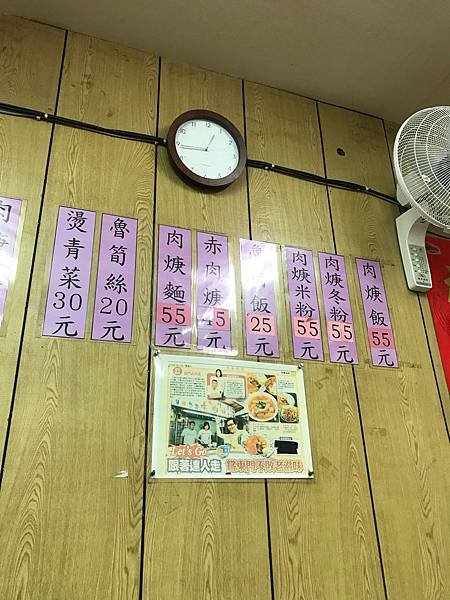 肉焿飯55元
肉焿冬粉55元
肉焿米粉55元
魯肉飯25元
赤肉焿45元
肉焿麵55元
魯筍絲20元
燙青菜30元
肉
Let's Go
跟著達人走
賞東門不敗老滋味